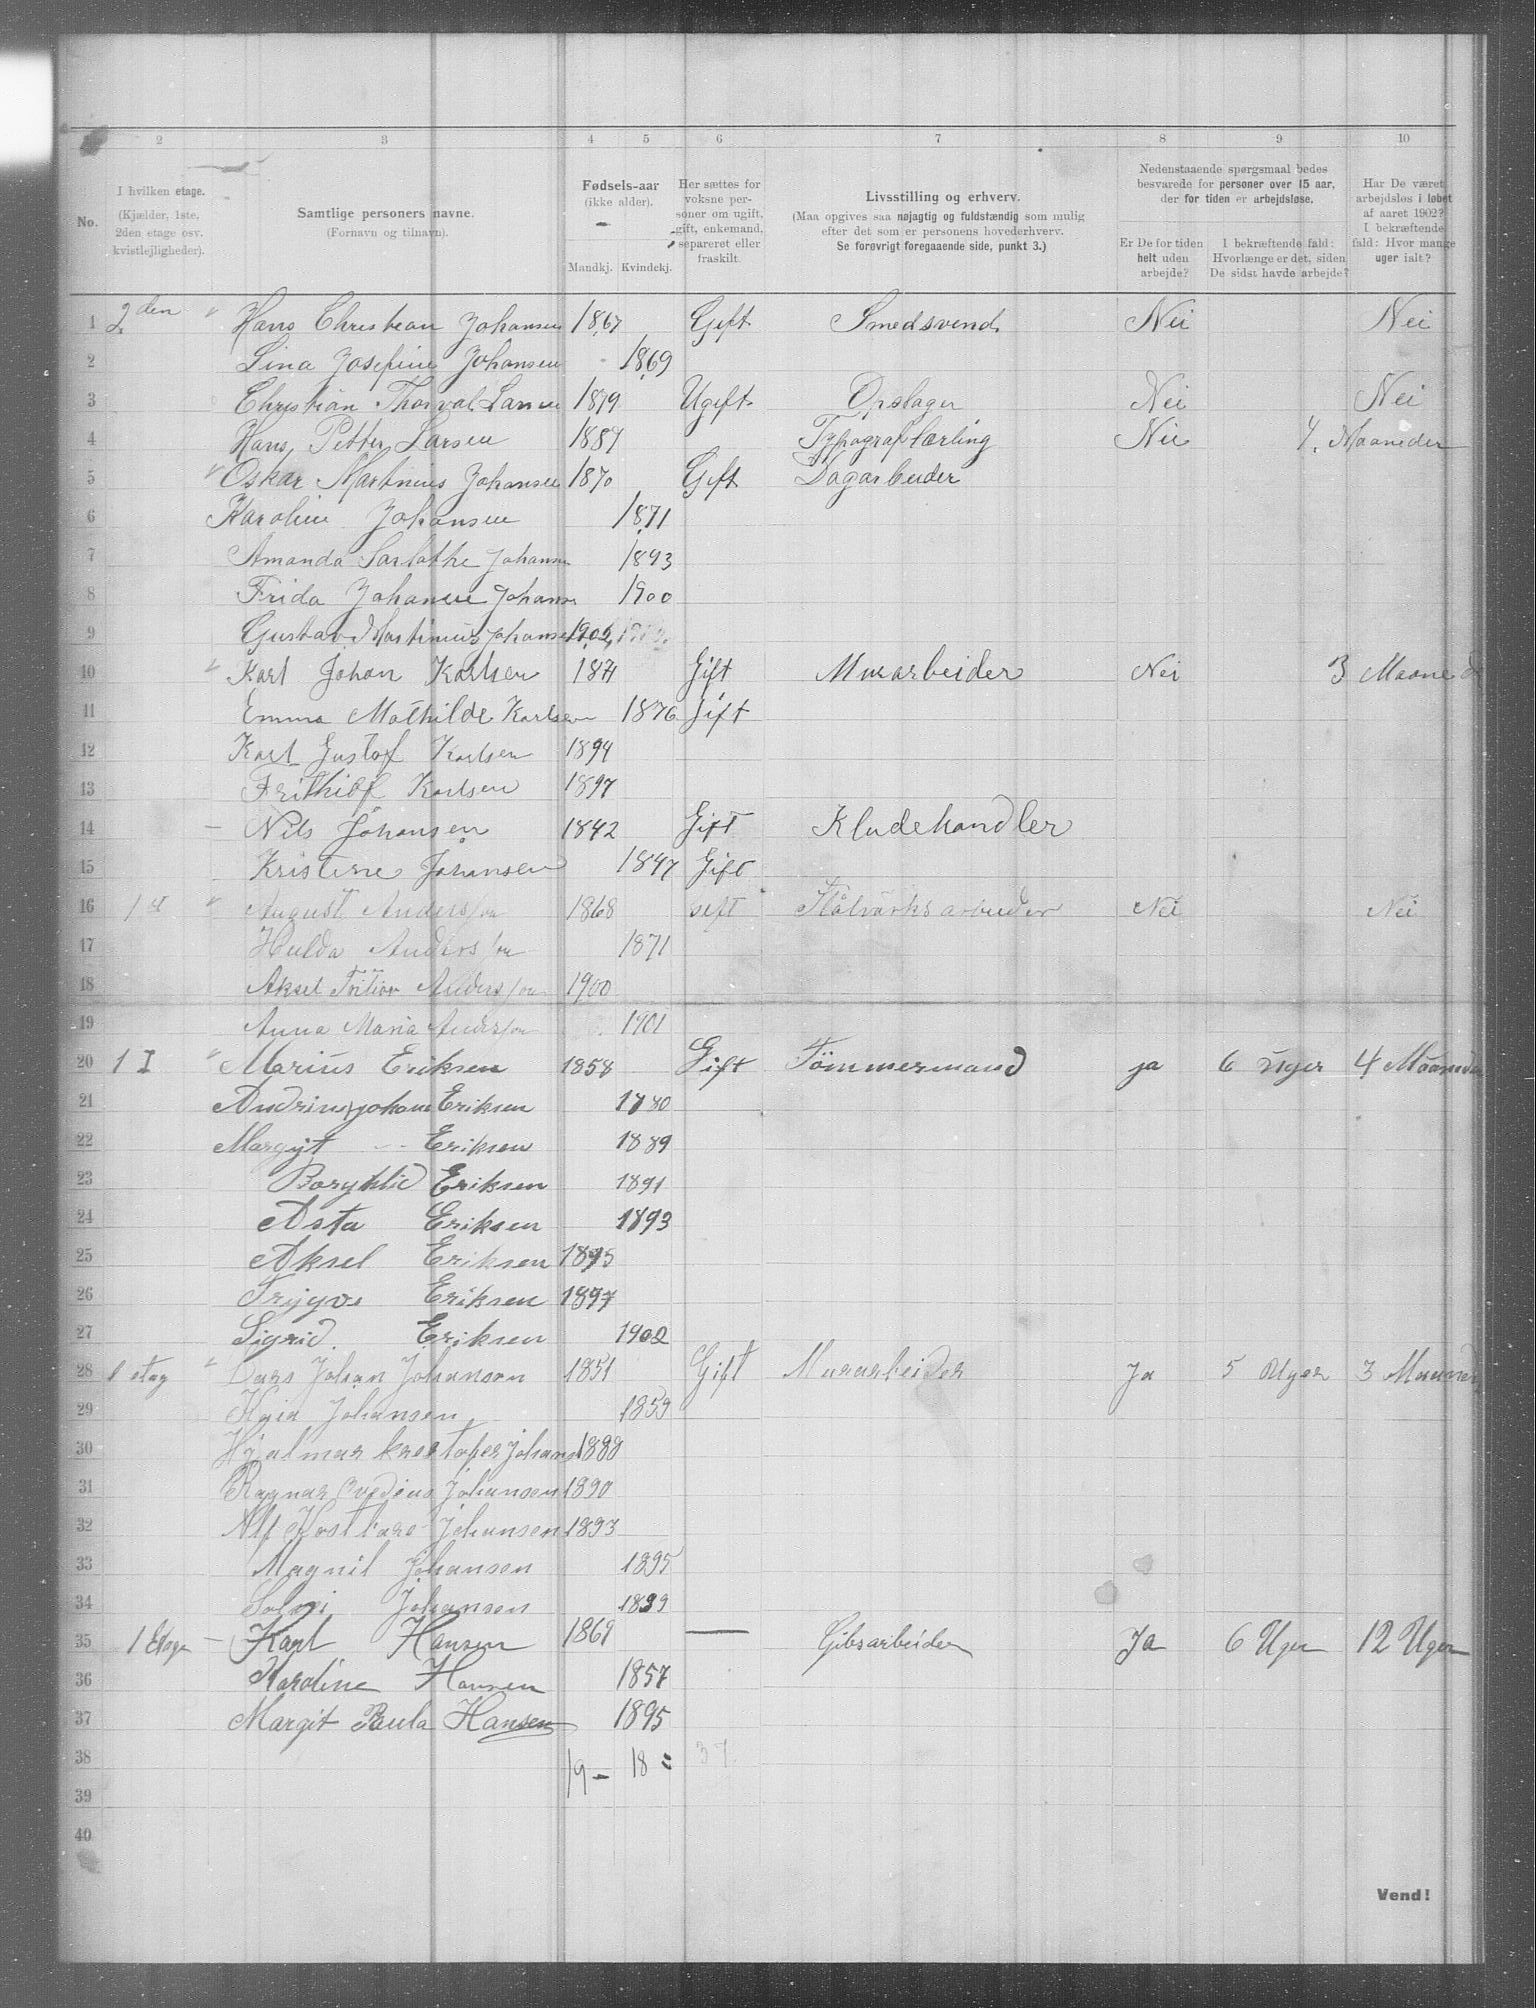 2 3 4 5 6 7 8 9 10
No. I hvilken etage. (Kjælder, 1ste, 2den etage osv. kvistlejligheder). Samtlige personers navne. (Fornavn og tilnavn). Fødsels-aar (ikke alder). Mandkj. Kvindekj. Her sættes for voksne personer om ugift, gift, enkemand, separeret eller fraskilt. Livsstilling og erhverv. (Maa opgives saa nøjagtig og fuldstændig som mulig efter det som er personens hovederhverv. Se forøvrigt foregaaende side, punkt 3.) Nedenstaaende spørgsmaal bedes besvarede for personer over 15 aar, der for tiden er arbejdsløse. Er De for tiden helt uden arbejde? I bekræftende fald: Hvorlænge er det, siden De sidst havde arbejde? Har De været arbejdsløs i løbet af aaret 1902? I bekræftende fald: Hvor mange uger ialt?
1 2den " Hans Christian Johansen 1867 Gift Smedsvend Nei Nei
2 Lina Josefine Johansen 1869
3 Christian Thorval Larsen 1879 Ugift Opslager Nei Nei
4 Hans Petter Larsen 1887 Typograf lærling Nei 4. Maaneder
5 " Oskar Martinius Johansen 1870 Gift Dagarbeider
6 Karoline Johansen 1871
7 Amanda Sarlothe Johansen 1893
8 Frida Johansen Johansen 1900
9 Gustav Martinius Johansen 1902
10 " Karl Johan Karlsen 1871 Gift Murarbeider Nei 3 Maaned
11 Emma Mathilde Karlsen 1876 Gift
12 Karl Gustaf Karlsen 1894
13 Frithiof Karlsen 1897
14 – Nils Johansen 1842 Gift Kludehandler
15 Kristine Johansen 1847 Gift
16 1st " August Andersson 1868 Gift Stålvärks arbeider Nei Nei
17 Hulda Andersson 1871
18 Aksel Andersson 1900
19 Anna Maria Andersson 1901
20 1 I " Marius Eriksen 1858 Gift Tömmermand ja 6 Uger 4 Maaneder
21 Andrine Johane Eriksen 1880
22 Margyt -- Eriksen 1889
23 Borghild Eriksen 1891
24 Asta Eriksen 1893
25 Aksel Eriksen 1895
26 Trygve Eriksen 1897
27 Sigrid. Eriksen 1902
28 1 etag " Lars Johan Johanson 1851 Gift Murarbeider Ja 5 Uger 3 Maaneder
29 Kaia Johansen 1859
30 Hjalmar Krestofer Johansen 1888
31 Ragnar Johansen 1890
32 Alf Johansen 1893
33 Magnil Johansen 1895
34 Solvei Johansen 1899
35 1 Etage – Karl Hansen 1869 — Gibsarbeider Ja 6 Uger 12 Uger
36 Karoline Hansen 1857
37 Margit Paula Hansen 1895
38 19 – 18 = 37
39
40
Vend!